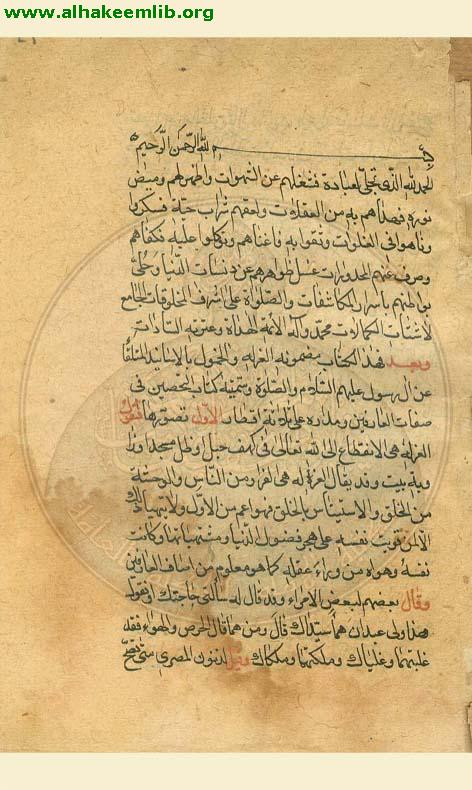 www.alhakeemlib.org
بسم الله الرحمن الرحيم
الحمد لله الذي تجلى لعباده فشغلهم عن الشهوات واظهر لهم وميض
نوره فصانهم به من الغفلات واسقهم شراب حبه فسكروا
وتاهوا في الفلوات وتقوا به فاغناهم وتوكلوا عليه فكفاهم
وصرف عنهم المحذورات غسل ظواهرهم عن دنسات الدنيا وحلى
بواطنهم باسرار المكاشفات والصلواة على اشرف المخلوقات الجامع
لاشتات الكمالات محمد وآله الأئمة الهداة وعترته السادات
وبعد فهذا الكتاب مضمونه العزلة والخمول بالاسانيد المتلقاة
عن آل رسول عليهم السلام والصلوة وسميته كتاب التحصين في
صفات العارفين ومداره على ثلاثة اقطاب الاول تصورها فنقول
العزلة هي الانقطاع الى الله تعالى في كهف جبل او ظل مسجد او زا
وية بيت وقد يقال العزلة هي الفرار من الناس والوحشة
من الخلق والاستيناس بالخلق فهو اعم من الاول ولا يتهيأ ذلك
الا لمن قويت نفسه على هجر فضول الدنيا ومشتهياتها وكانت
نفسه وهواه من وراء عقله كما هو معلوم من اوصاف العارفين
وقال بعضهم لبعض الامراء وقد قال له سألني حاجتك او تقول
هذا ولي عبدان هما سيداك قال ومن هما قال الحرص والهواء فقد
غلبتهما وغلباك وملكتهما وملكاك وقيل لذنون المصري متى تصح